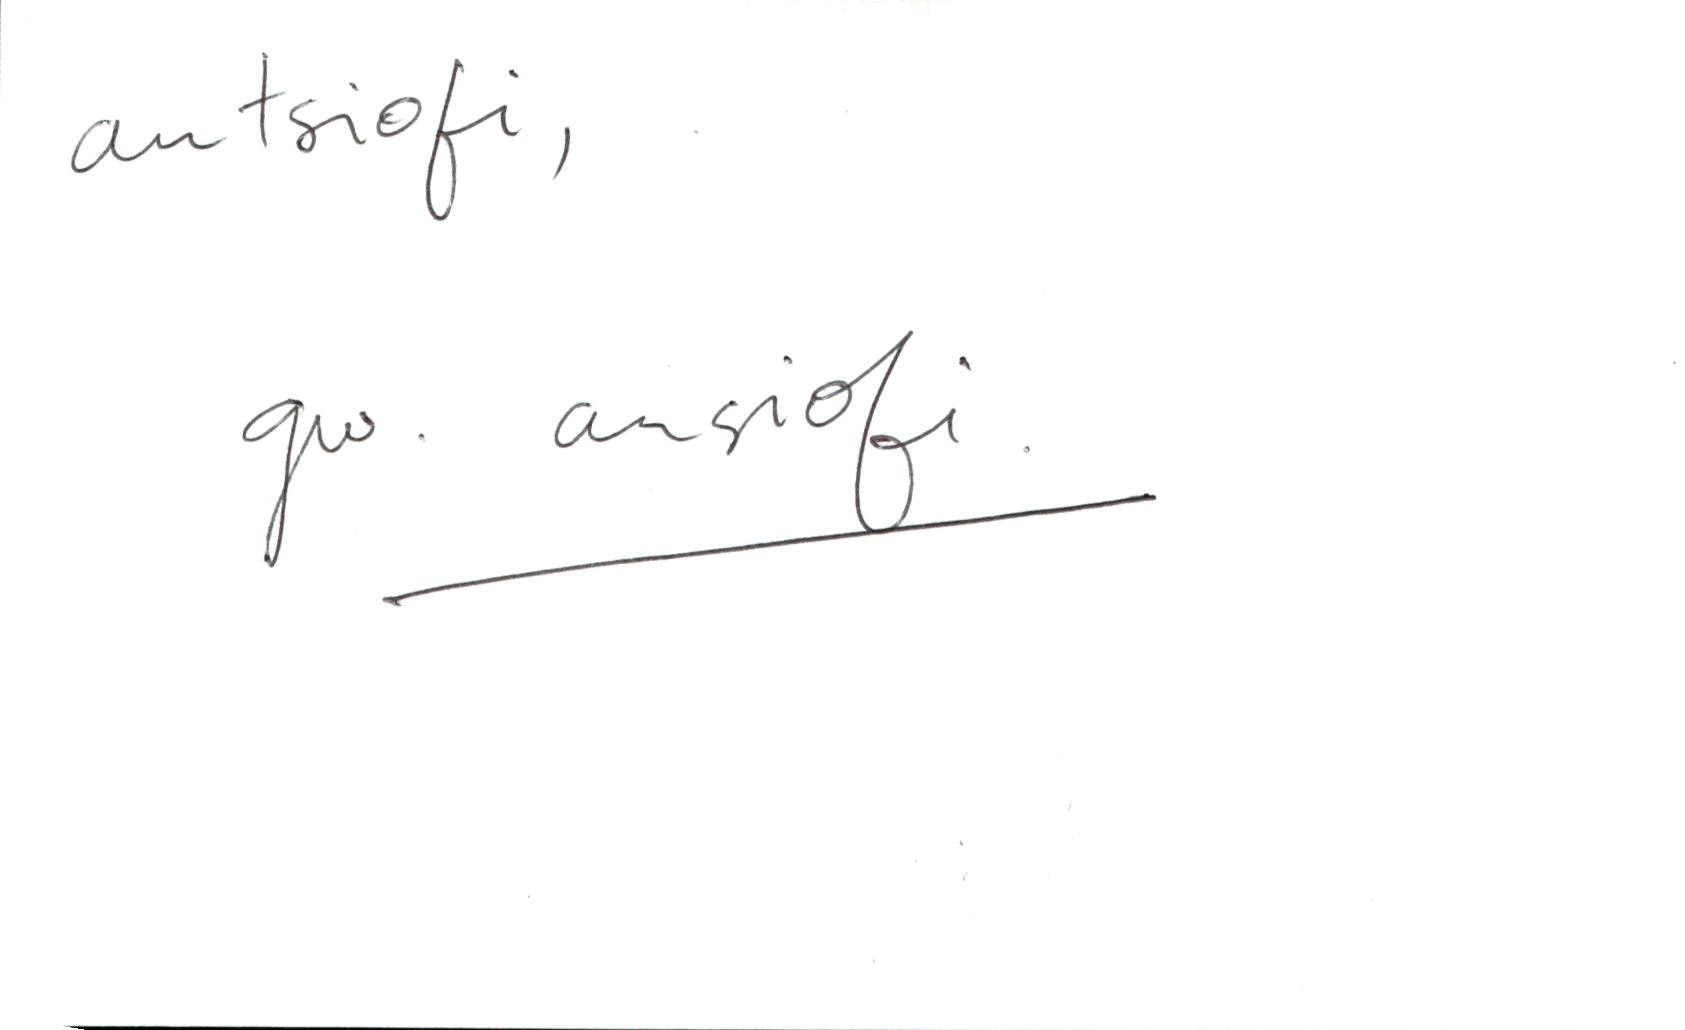 antsiofi,
gw. ansiofi.